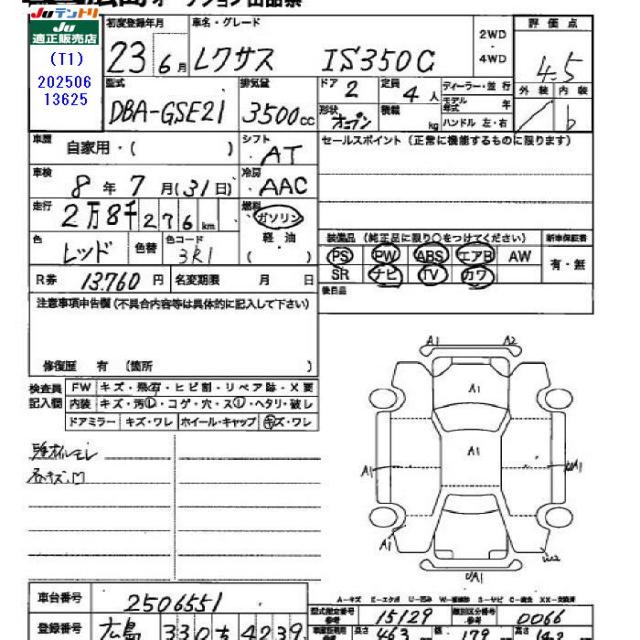 Juテントリ
Ju
適正販売店
(T1)
202506
13625
初度登録年月 車名・グレード 2WD ・ 4WD 評価点
23 6月 レクサス IS350C 4.5
型式 排気量 ドア 2 定員 4人 ディーラー・並行 外装 内装
DBA-GSE21 3500cc 形状 オープン 積載 kg モデル年式 年 ハンドル 左・右 b
車歴 自家用・( ) シフト AT セールスポイント (正常に機能するものに限ります)
車検 8年 7月(31日) 冷房 AAC
走行 2万8千276km 燃料 ガソリン 軽油 ( )
色 レッド 色替 色コード 3R1 装備品 (純正品に限り○をつけてください) 新車保証書
PS PW ABS エアB AW 有・無
SR ナビ TV カワ
R券 13,760円 名変期限 月 日 後日品
注意事項申告欄(不具合内容等は具体的に記入して下さい)
修復歴 有 (箇所 )
検査員記入欄 FW キズ・飛石・ヒビ割・リペア跡・X要
内装 キズ・汚れ・コゲ・穴・スレ・ヘタリ・破レ
ドアミラー キズ・ワレ ホイール・キャップ キズ・ワレ
A1 A2
A1
A1
A1
A1
A-キズ E-エクボ U-凹み W-補修跡 S-サビ C-腐食 XX-交換済
車台番号 2506551 型式指定番号 15129 類別区分番号 0066
登録番号 広島 330 ち 4239 長さ 463 幅 179 高さ